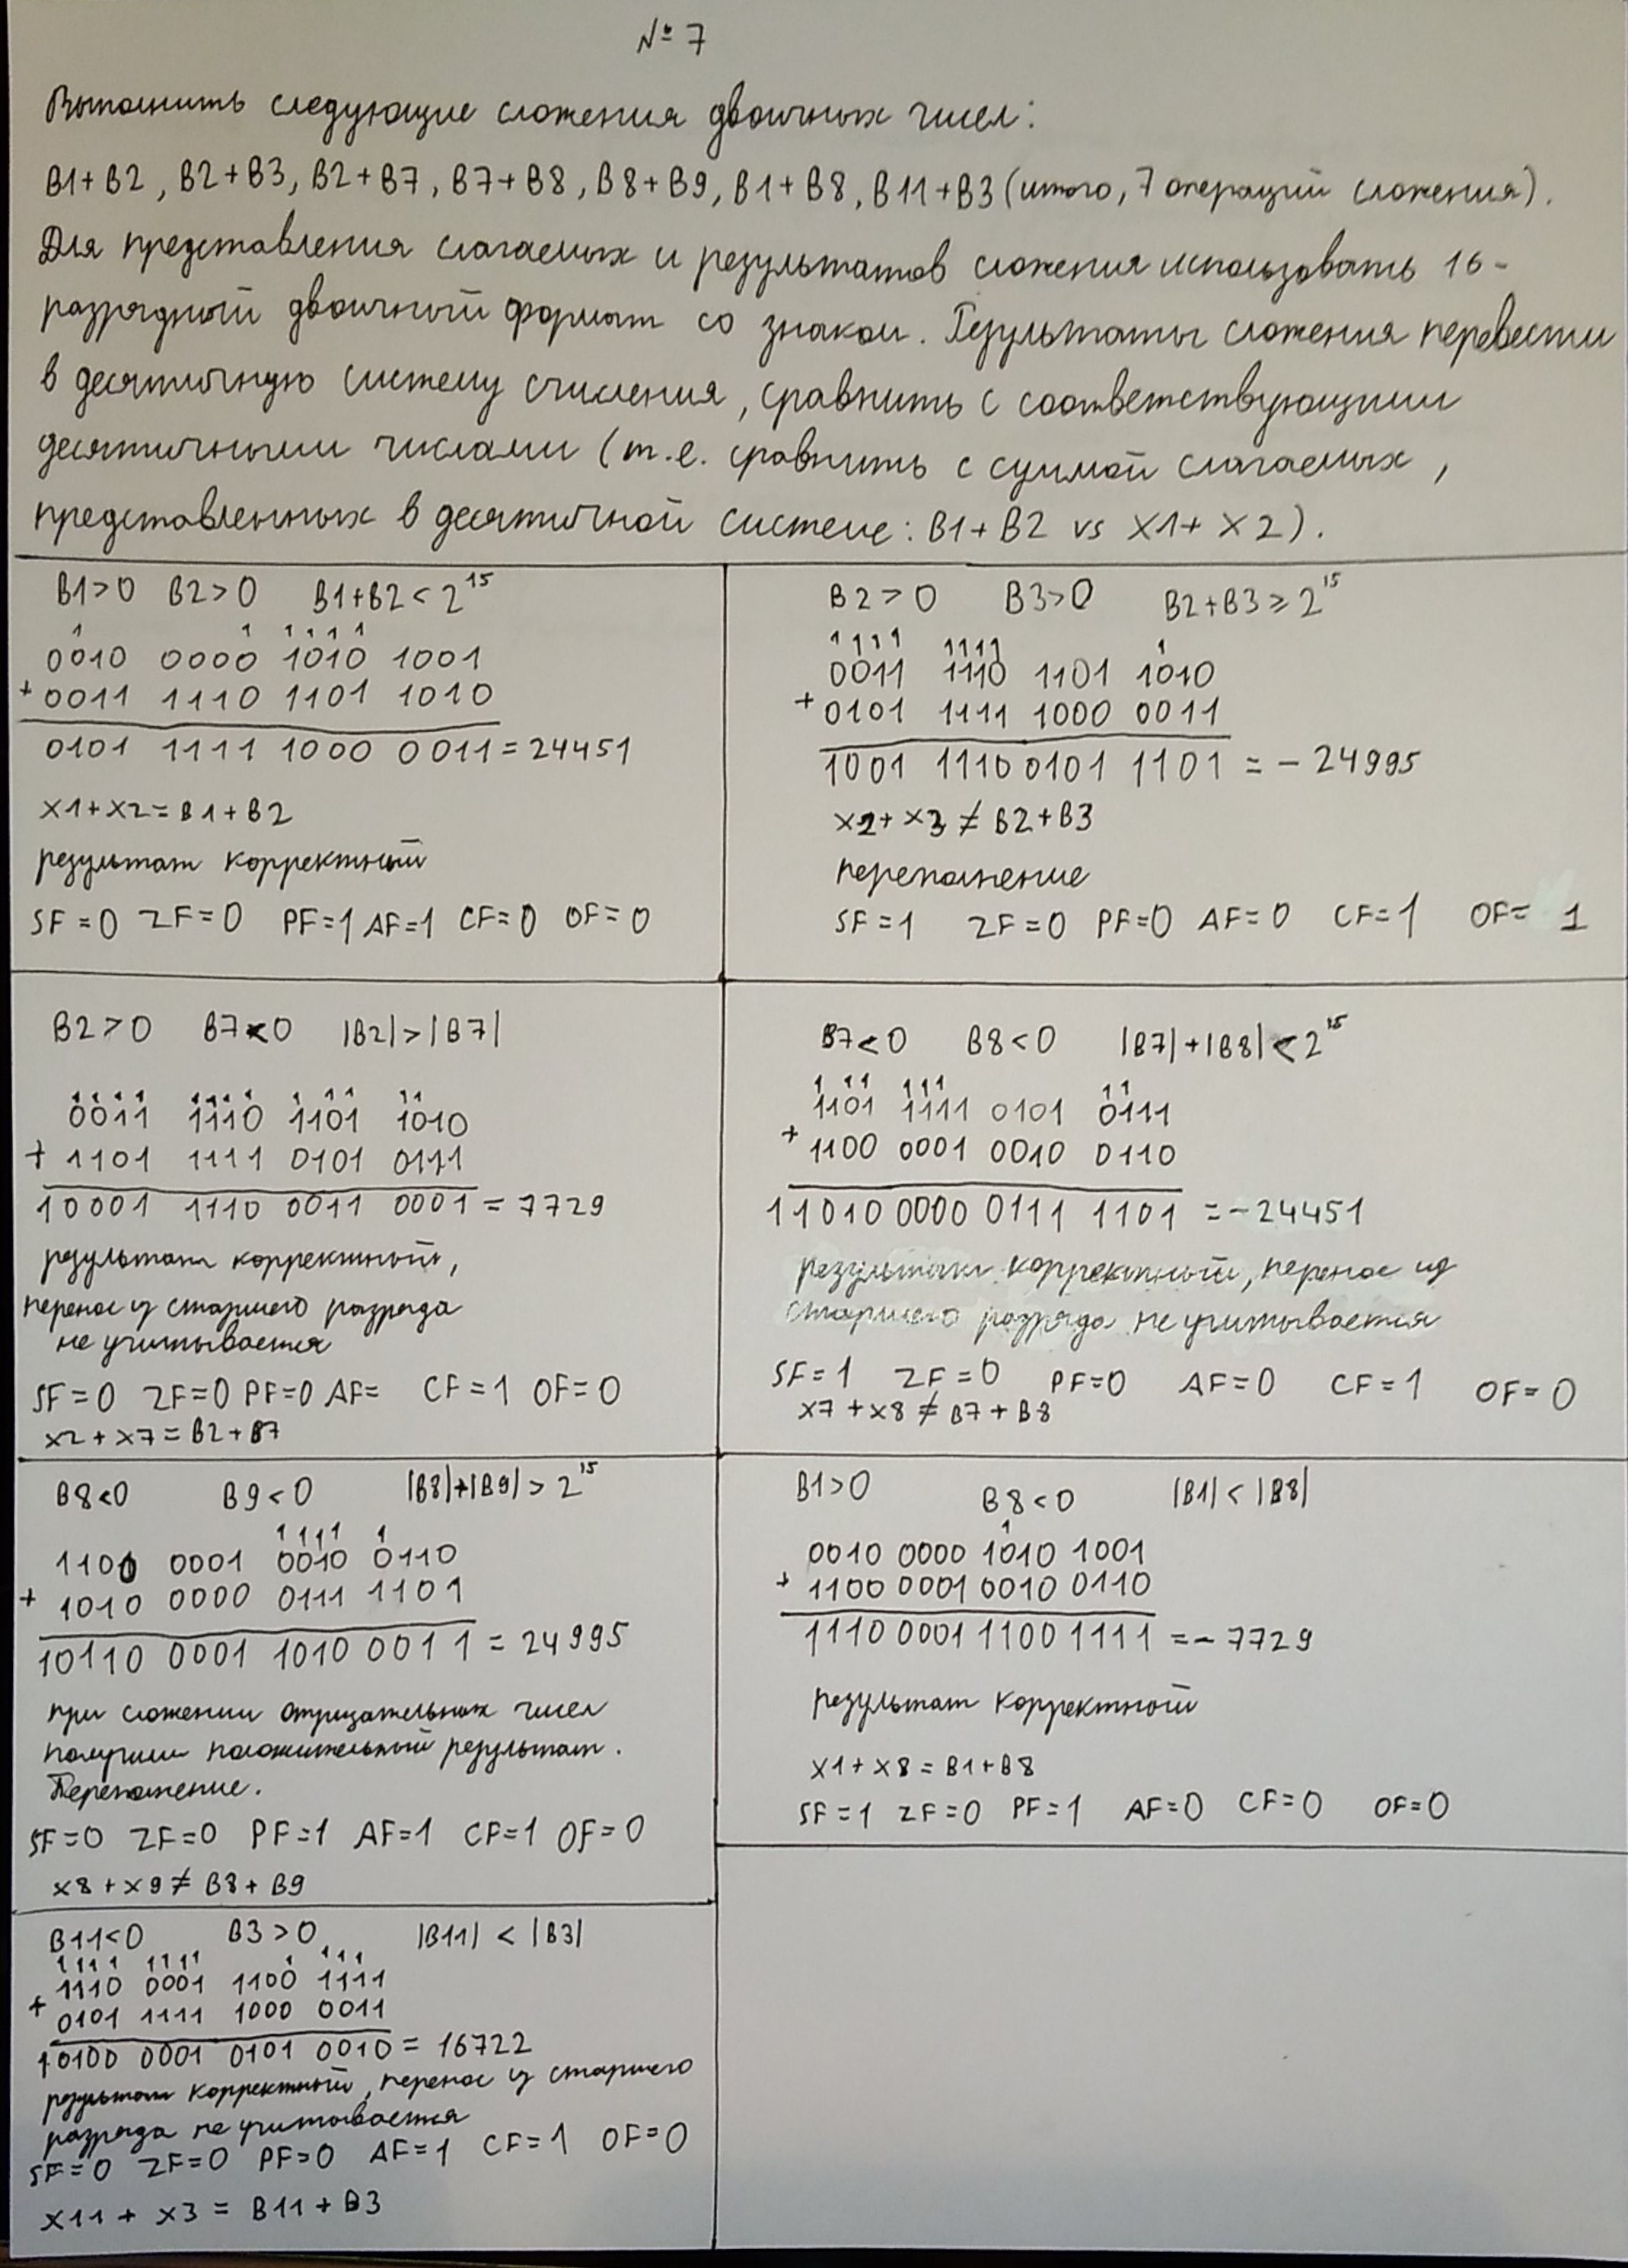 № 7
Выполнить следующие сложения двоичных чисел:
B1+B2, B2+B3, B2+B7, B7+B8, B8+B9, B1+B8, B11+B3 (итого, 7 операций сложения).
Для представления слагаемых и результатов сложения использовать 16-
разрядный двоичный формат со знаком. Результаты сложения перевести
в десятичную систему счисления, сравнить с соответствующими
десятичными числами (т.е. сравнить с суммой слагаемых,
представленных в десятичной системе: B1+B2 vs X1+X2).
B1>0 B2>0 B1+B2<2¹⁵
1 1 1 1 1 1
0010 0000 1010 1001
+ 0011 1110 1101 1010
0101 1111 1000 0011 = 24451
X1+X2=B1+B2
результат корректный
SF=0 ZF=0 PF=1 AF=1 CF=0 OF=0
B2>0 B3>0 B2+B3≥2¹⁵
1111 1111 1
0011 1110 1101 1010
+ 0101 1111 1000 0011
1001 1110 0101 1101 = -24995
X2+X3≠B2+B3
переполнение
SF=1 ZF=0 PF=0 AF=0 CF=1 OF=1
B2>0 B7<0 |B2|>|B7|
1111 1111 1 11 11
0011 1110 1101 1010
+ 1101 1111 0101 0111
10001 1110 0011 0001 = 7729
результат корректный,
перенос из старшего разряда
не учитывается
SF=0 ZF=0 PF=0 AF= CF=1 OF=0
X2+X7=B2+B7
B7<0 B8<0 |B7|+|B8|<2¹⁵
1 11 111 11
1101 1111 0101 0111
+ 1100 0001 0010 0110
11010 0000 0111 1101 = -24451
результат корректный, перенос из
старшего разряда не учитывается
SF=1 ZF=0 PF=0 AF=0 CF=1 OF=0
X7+X8≠B7+B8
B8<0 B9<0 |B8|+|B9|>2¹⁵
1111 1
1100 0001 0010 0110
+ 1010 0000 0111 1101
10110 0001 1010 0011 = 24995
при сложении отрицательных чисел
получили положительный результат.
Переполнение.
SF=0 ZF=0 PF=1 AF=1 CF=1 OF=0
X8+X9≠B8+B9
B1>0 B8<0 |B1|<|B8|
1
0010 0000 1010 1001
+ 1100 0001 0010 0110
1110 0001 1100 1111 = -7729
результат корректный
X1+X8=B1+B8
SF=1 ZF=0 PF=1 AF=0 CF=0 OF=0
B11<0 B3>0 |B11|<|B3|
1111 1111 1 111
1110 0001 1100 1111
+ 0101 1111 1000 0011
10100 0001 0101 0010 = 16722
результат корректный, перенос из старшего
разряда не учитывается
SF=0 ZF=0 PF=0 AF=1 CF=1 OF=0
X11+X3=B11+B3